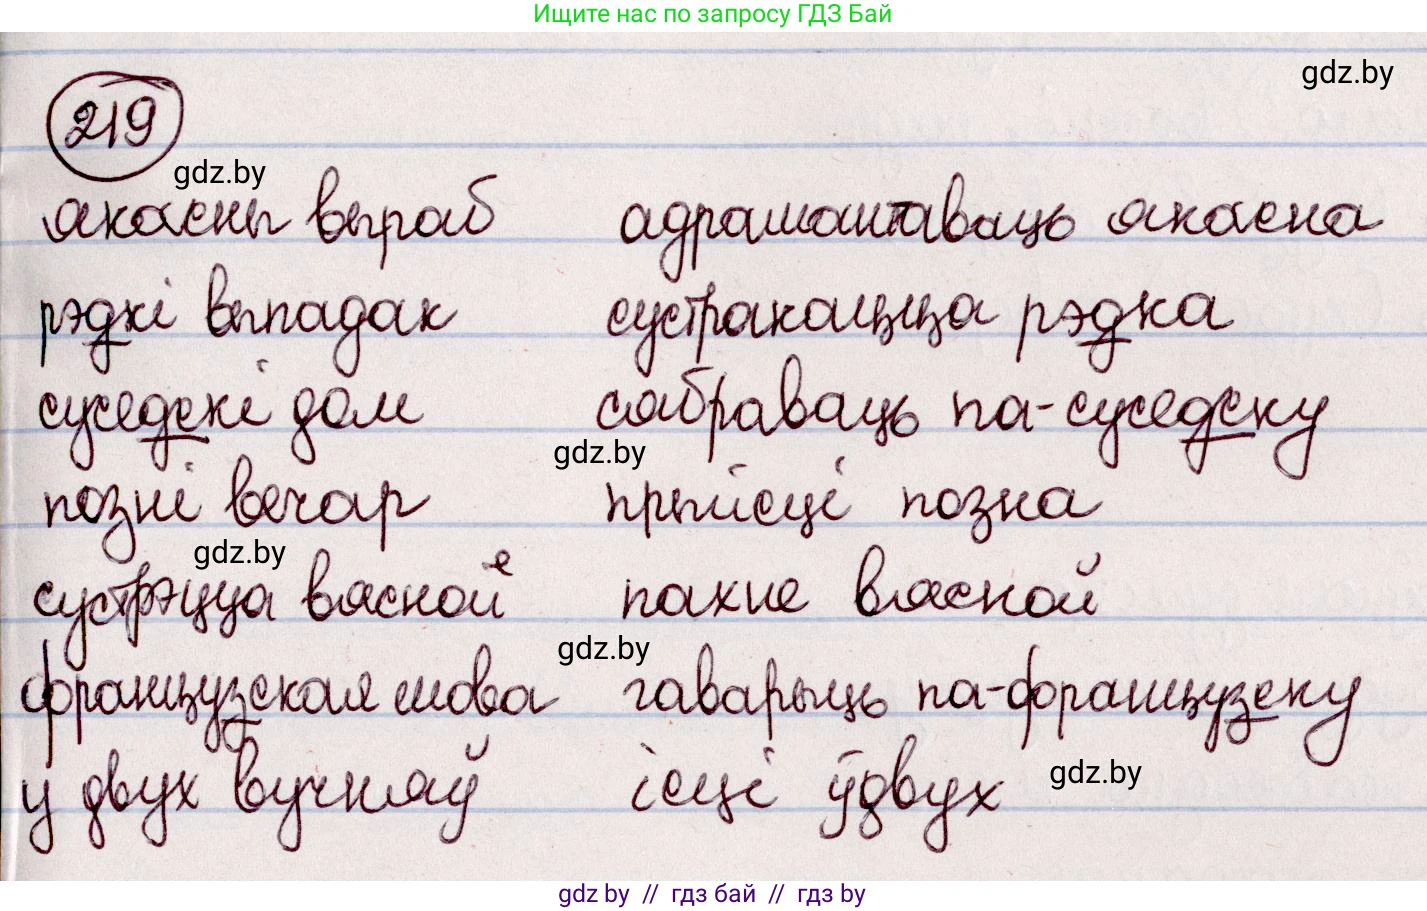 Ищите нас по запросу ГДЗ Бай
gdz.by
219
gdz.by
якасны выраб адрамантаваць якасна
рэдкі выпадак сустракацца рэдка
суседскі дом сябраваць па-суседску
gdz.by
позні вечар прыйсці позна
gdz.by
сустрэцца вясной пахне вясной
gdz.by
французская мова гаварыць па-французску
у двух вучняў ісці ўдвух
gdz.by
gdz by // гдз бай // гдз by